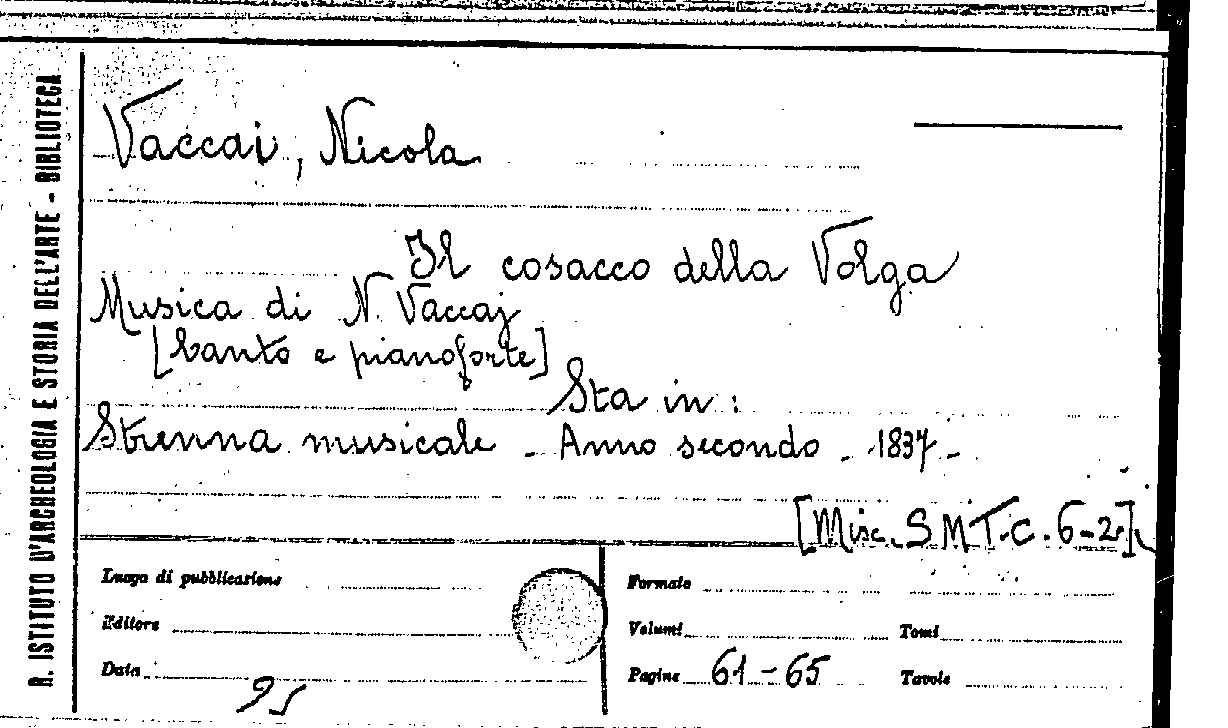 R. ISTITUTO D'ARCHEOLOGIA E STORIA DELL'ARTE - BIBLIOTECA
Vaccai, Nicola
Il cosacco della Volga
Musica di N. Vaccaj
[Canto e pianoforte]
Sta in:
Strenna musicale - Anno secondo - 1837 -
[Misc. S M T. C. 6-2]
Luogo di pubblicazione
Editore
Data
Formato
Volumi Tomi
Pagine 61-65 Tavole
95